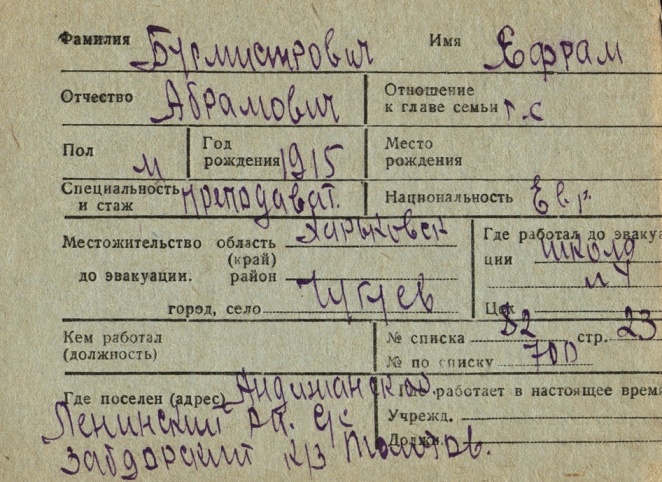 Фамилия Бурмистрович Имя Ефрам
Отчество Абрамович Отношение к главе семьи г.с
Пол м Год рождения 1915 Место рождения
Специальность и стаж преподават. Национальность Евр.
Местожительство область Харьковск Где работал до эвакуа
(край) ции школа
до эвакуации. район
город, село Чугуев Цех
Кем работал № списка 82 стр. 23
(должность) № по списку 700
Где поселен (адрес) Андижанская Где работает в настоящее время
Ленинский Учрежд.
к/з Должн.